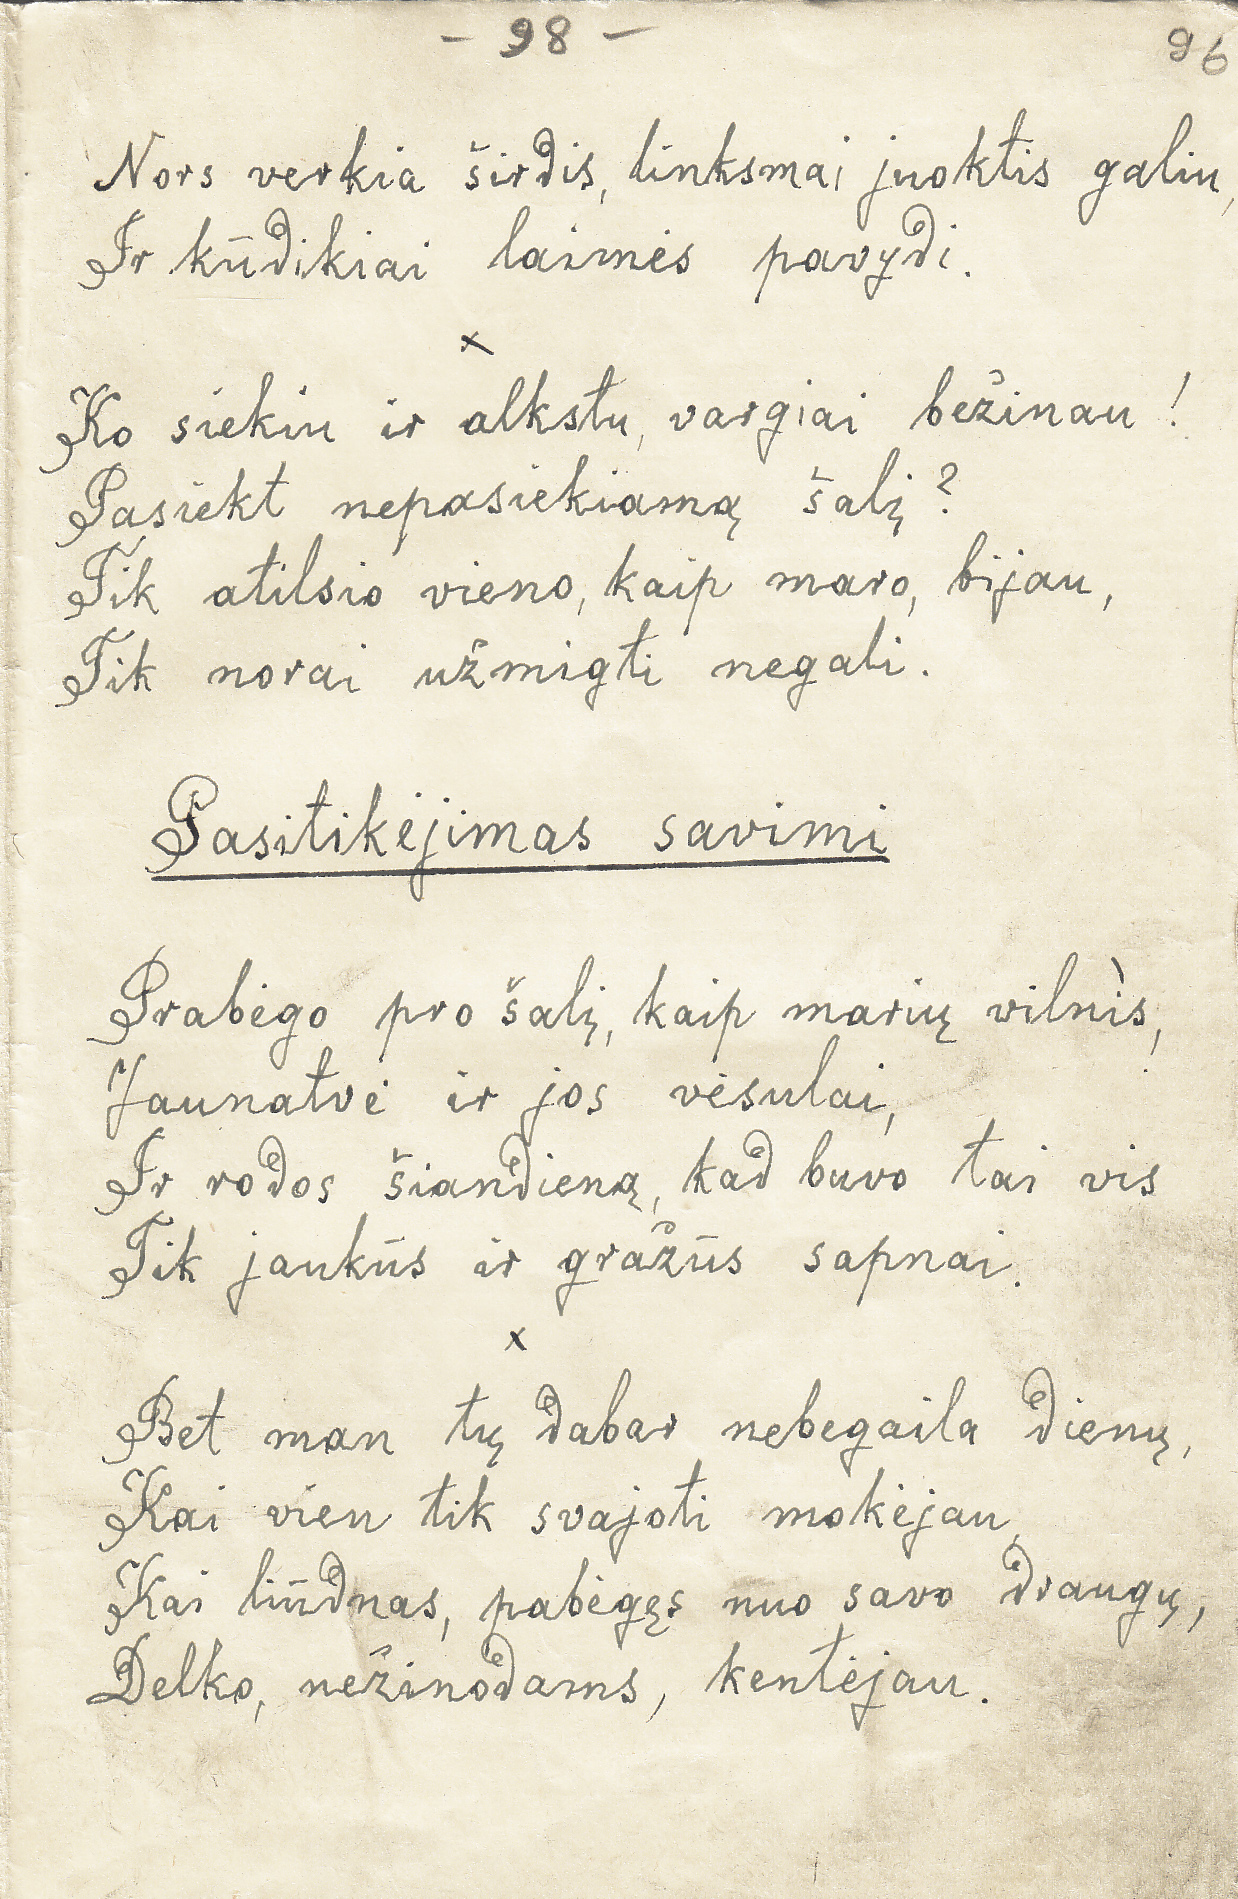 - 98 -
96
Nors verkia širdis, linksmai juoktis galiu,
Ir kūdikiai laimės pavydi.
x
Ko siekiu ir alkstu, vargiai bežinau!
Pasiekt nepasiekiamą šalį?
Tik atilsio vieno, kaip maro, bijau,
Tik norai užmigti negali.
Pasitikėjimas savimi
Prabėgo pro šalį, kaip marių vilnìs,
Jaunatvė ir jos vėsulai,
Ir rodos šiandieną, kad buvo tai vis
Tik jaukūs ir gražūs sapnai.
x
Bet man tų dabar nebegaila dienų,
Kai vien tik svajoti mokėjau,
Kai liūdnas, pabėgęs nuo savo draugų,
Delko, nežinodams, kentėjau.